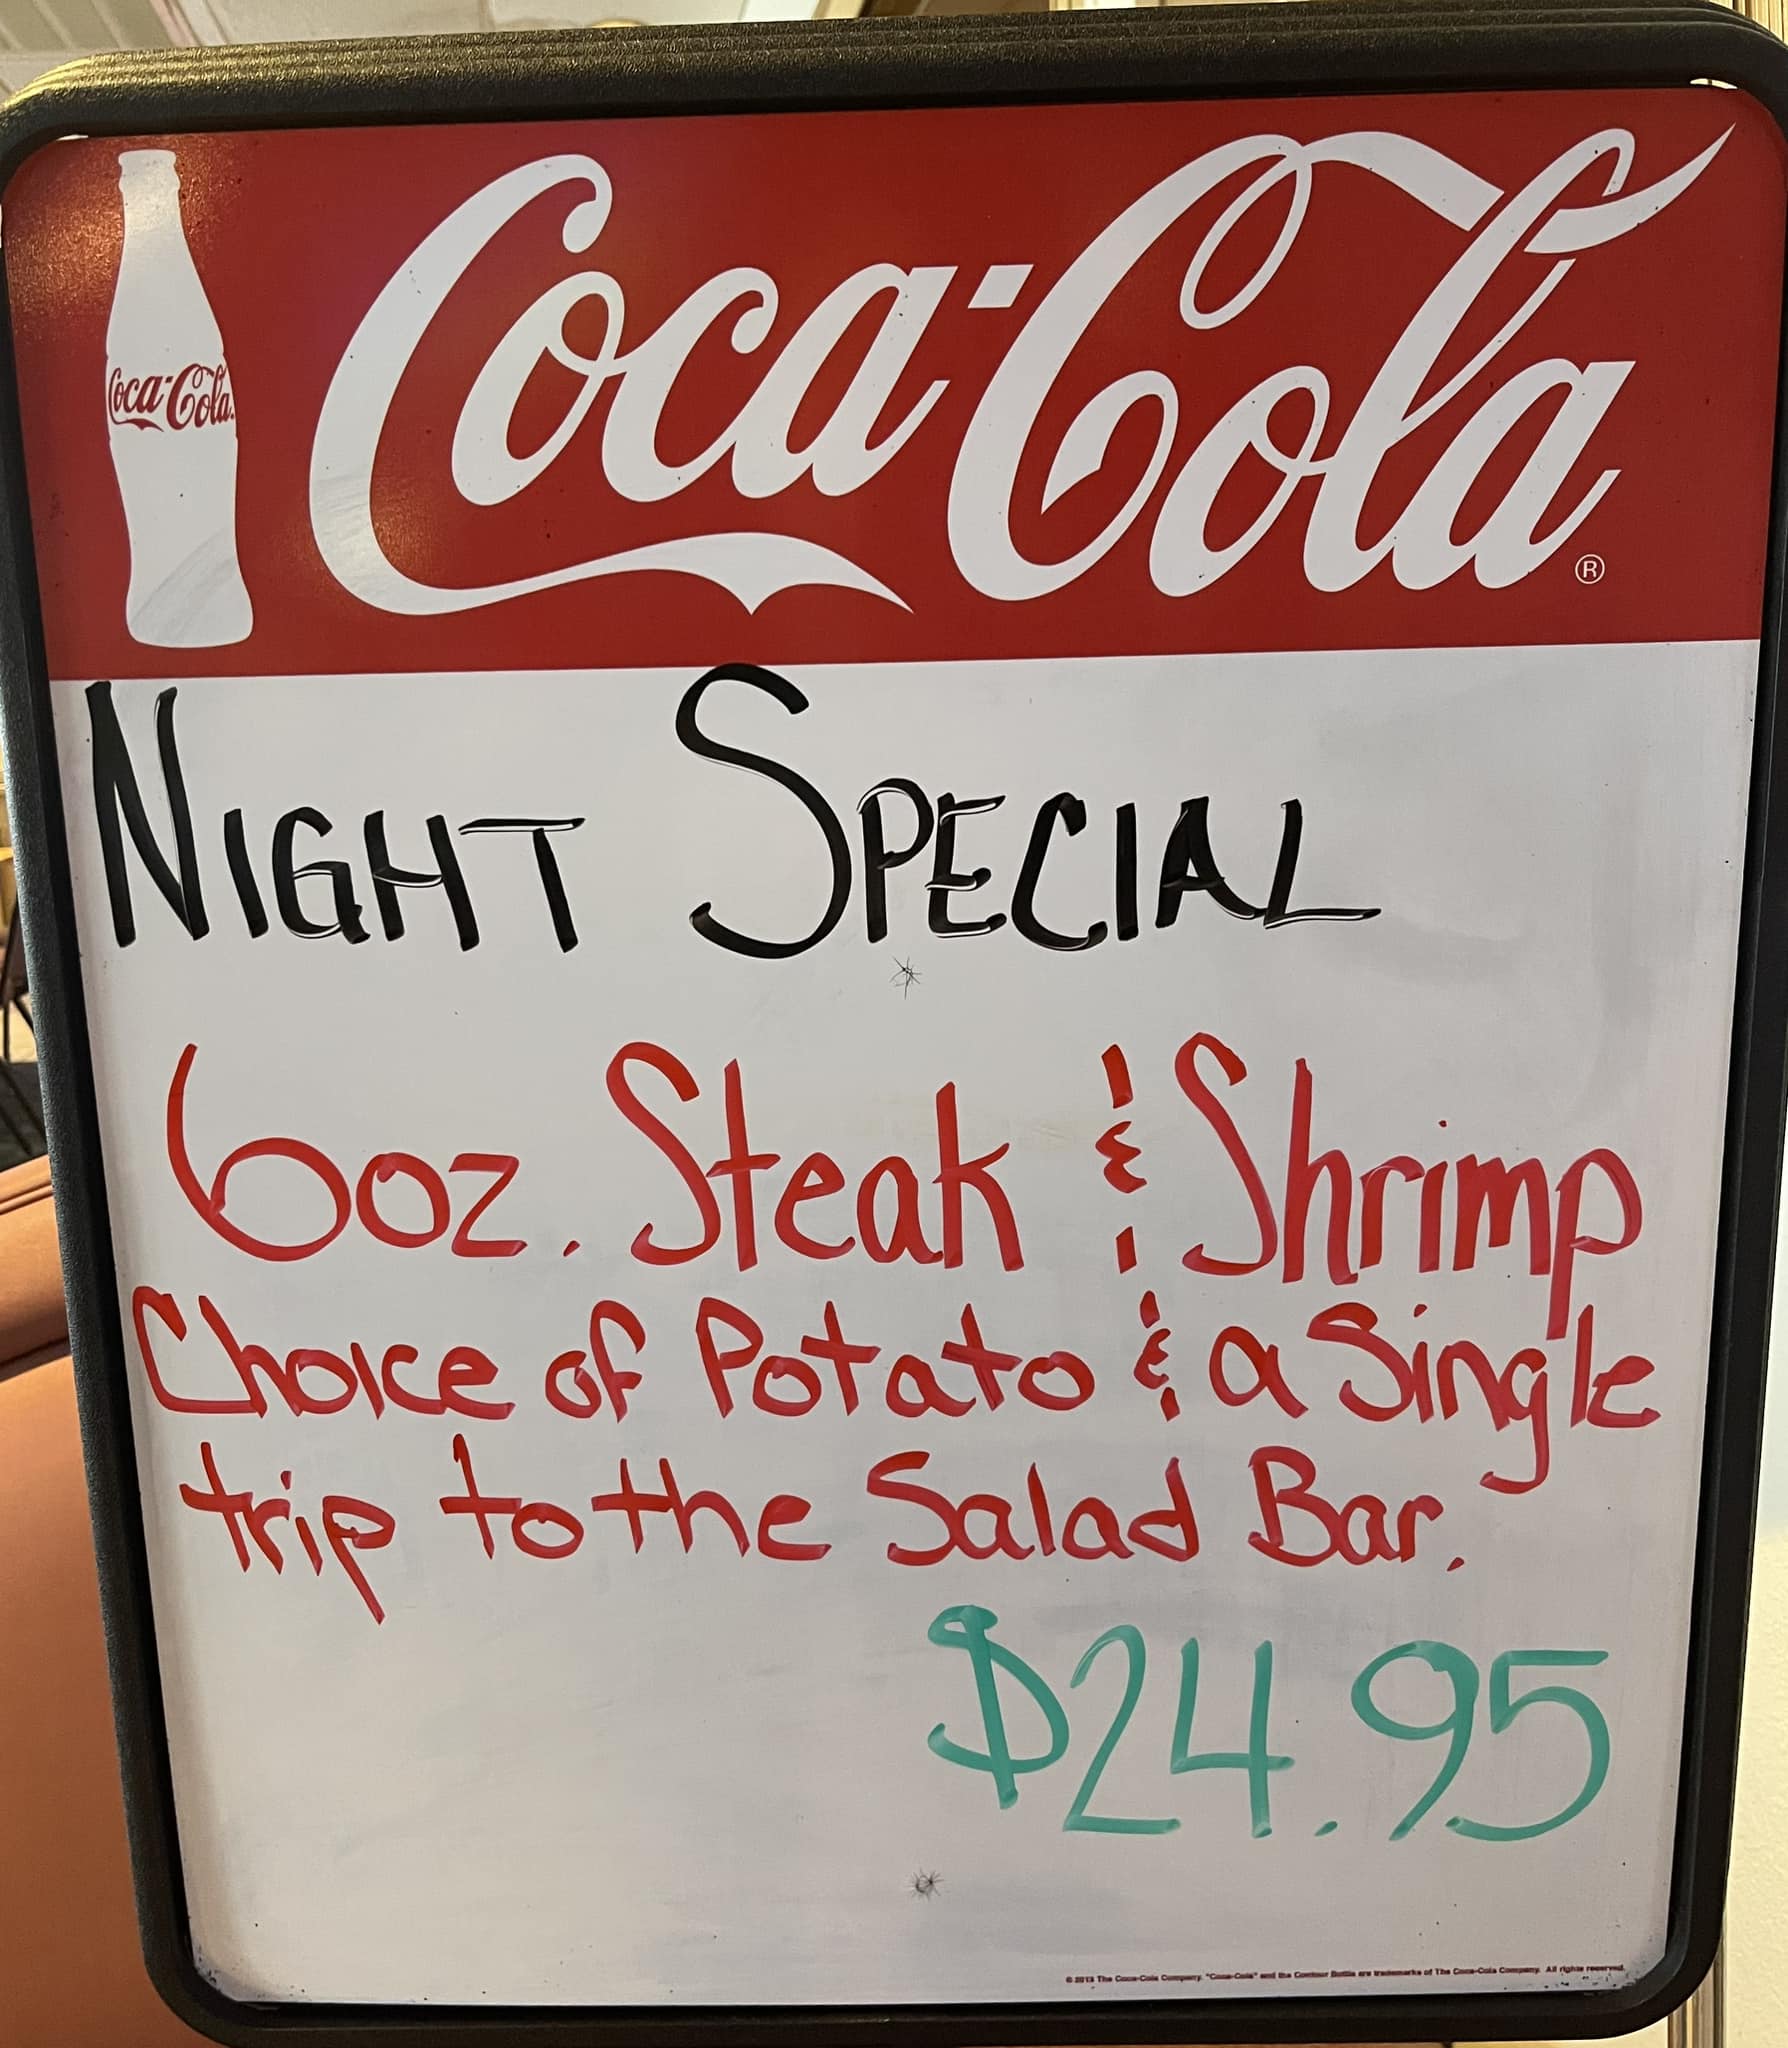 Coca-Cola
Coca-Cola®
NIGHT SPECIAL
6oz. Steak & Shrimp
Choice of Potato & a Single
trip to the Salad Bar.
$24.95
© 2013 The Coca-Cola Company. "Coca-Cola" and the Contour Bottle are trademarks of The Coca-Cola Company. All rights reserved.